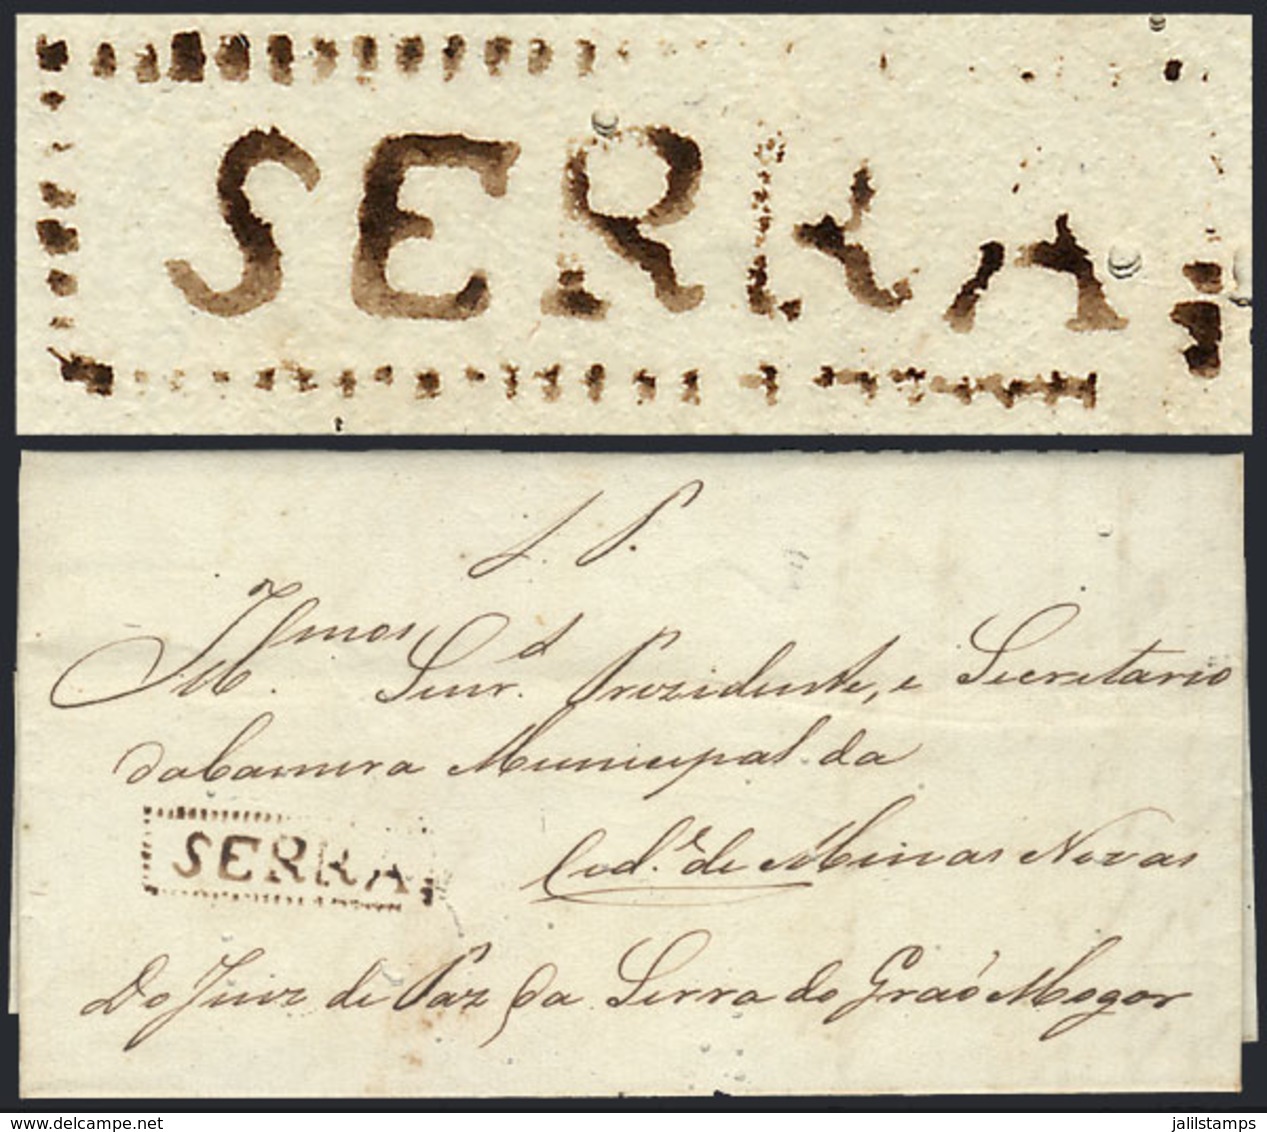 SERRA
S. P.
Illmos
M. Senr. d Prezidente, e Secretario
da Camera Municipal da
SERRA
Cid.e de Minas Novas
Do Juiz de Paz da Serra do Graõ Mogor
delcampe.net
jalilstamps